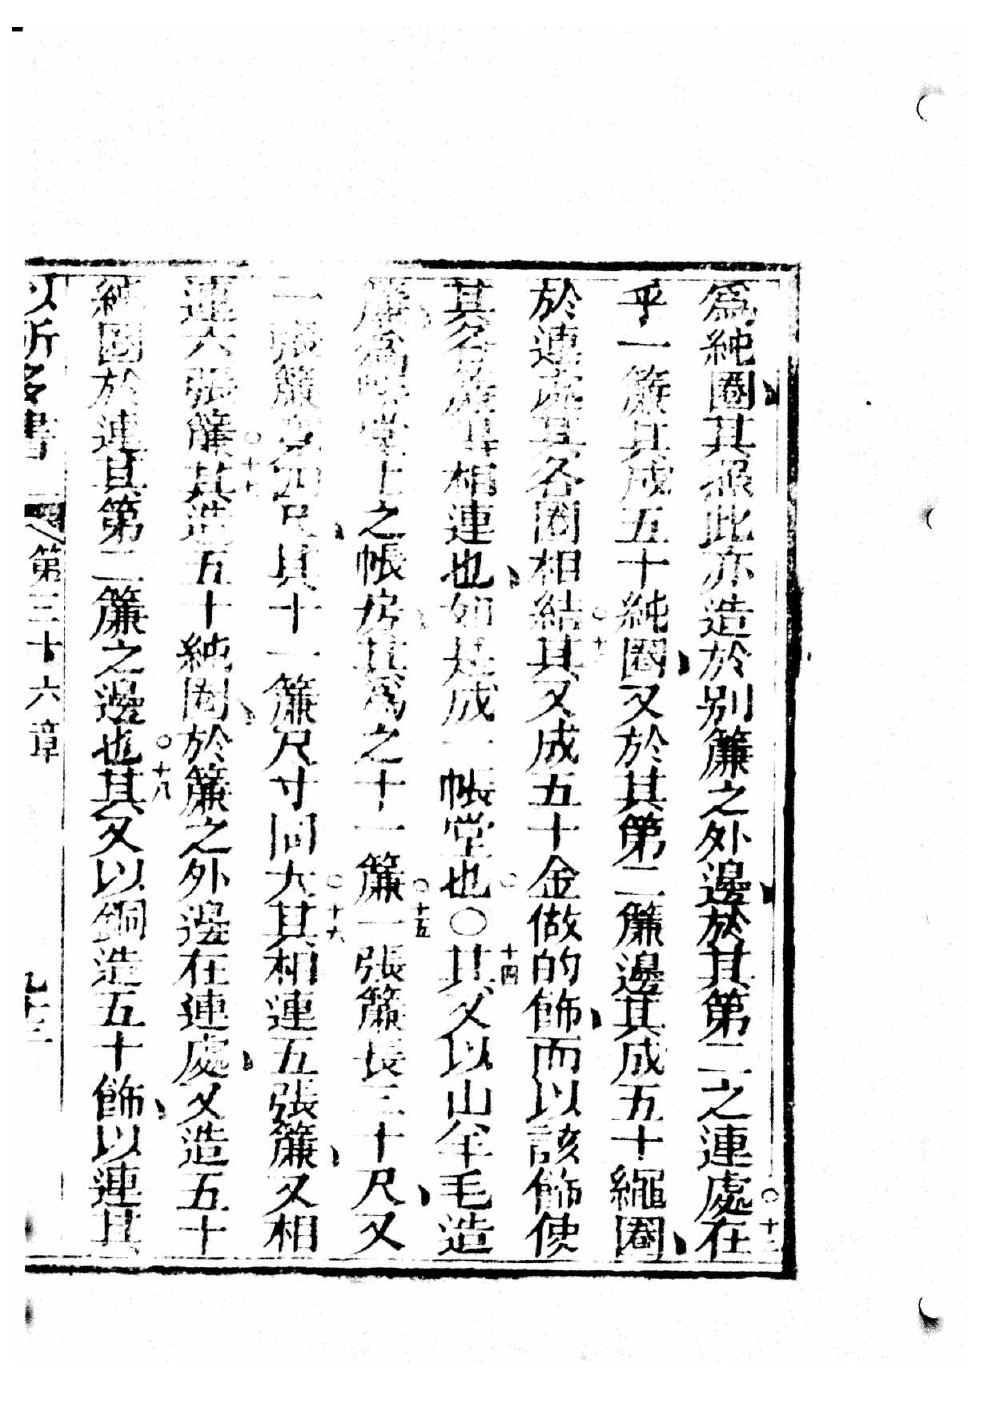 為純圈、其照此亦造於別簾之外邊、於其第二之連處○十二在
乎一簾其成五十純圈、又於其第二簾邊其成五十繩圈、
於連處其各圈相結○十三其又成五十金做的飾、而以該飾使
其各簾得相連也、如是成一帳堂也○○十四其又以山羊毛造
簾為帳堂上之帳房、其為之十一簾○十五一張簾長三十尺、又
一張簾寬四尺、其十一簾尺寸同大○十六其相連五張簾、又相
連六張簾○十七其造五十純圈、於簾之外邊在連處、又造五十
純圈於連其第二簾之邊也○十八其又以銅造五十飾、以連其
以所多書 第三十六章 九十二